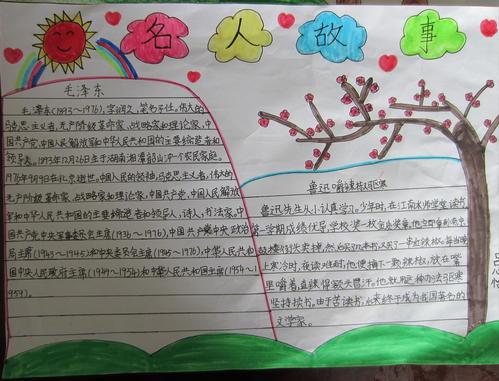 名人故事
毛泽东
毛泽东(1893～1976),字润之,笔名子任。伟大的
马克思主义者,无产阶级革命家、战略家和理论家,中
国共产党、中国人民解放军和中华人民共和国的主要缔造者和
领导者。1893年12月26日生于湖南湘潭韶山冲一个农民家庭。
1976年9月9日在北京逝世。中国人民的领袖,马克思主义者,伟大的
无产阶级革命家、战略家和理论家,中国共产党、中国人民解放
军和中华人民共和国的主要缔造者和领导人,诗人,书法家。中
国共产党中央军事委员会主席(1936～1976),中国共产党中央政治
局主席(1943～1945)和中央委员会主席(1945～1976),中华人民共和
国中央人民政府主席(1949～1954)和中华人民共和国主席(1954～1
959)。
鲁迅嚼辣椒驱寒
鲁迅先生从小认真学习。少年时,在江南水师学堂读书,
第一学期成绩优异,学校奖
卖掉,然后买了几本书,又买了一串红辣椒。每当晚
上寒冷时,夜读难耐,他便摘下一颗辣椒,放在嘴
里嚼着,直辣得额头冒汗。他就用这种办法驱寒
坚持读书。由于苦读书,后来终于成为我国著名的
文学家。